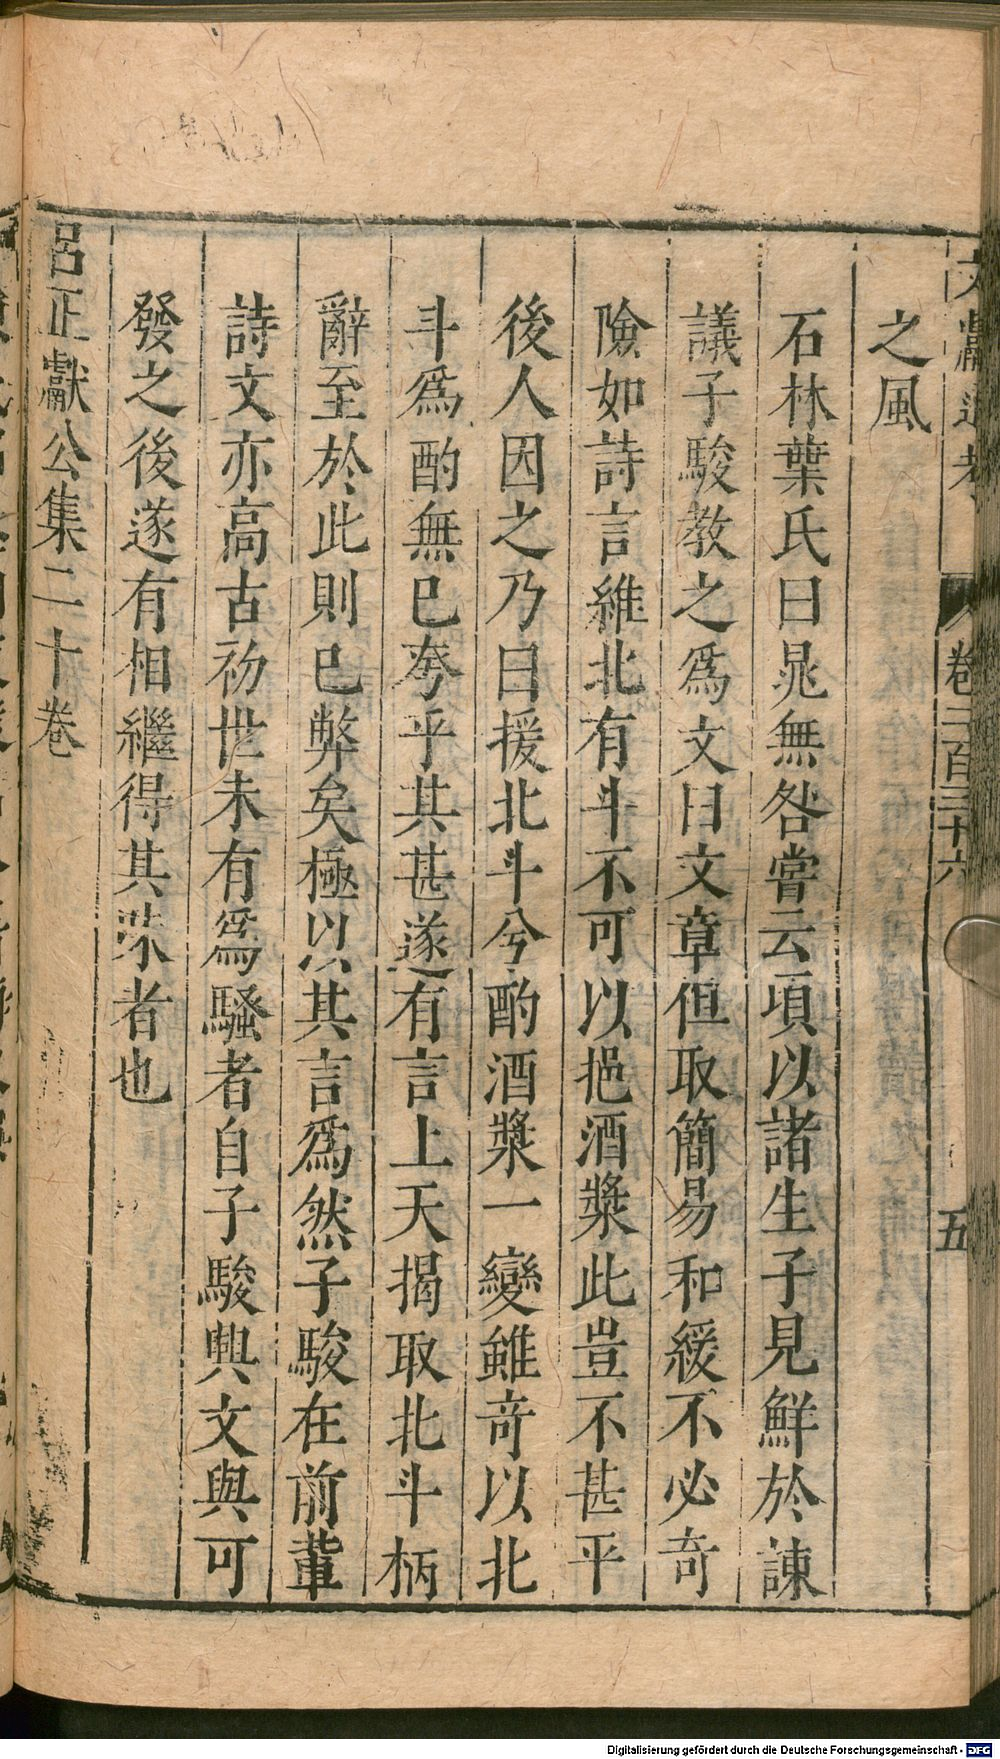 文獻通考 卷二百三十六 五
之風
石林葉氏曰晁無咎嘗云頃以諸生子見鮮於諫
議子駿教之爲文曰文章但取簡易和緩不必奇
險如詩言維北有斗不可以挹酒漿此豈不甚平
後人因之乃曰援北斗兮酌酒漿一變雖奇以北
斗爲酌無已夸乎其甚遂有言上天揭取北斗柄
辭至於此則已弊矣極以其言爲然子駿在前輩
詩文亦高古初世未有爲騷者自子駿與文與可
發之後遂有相繼得其味者也
呂正獻公集二十卷
Digitalisierung gefördert durch die Deutsche Forschungsgemeinschaft - DFG